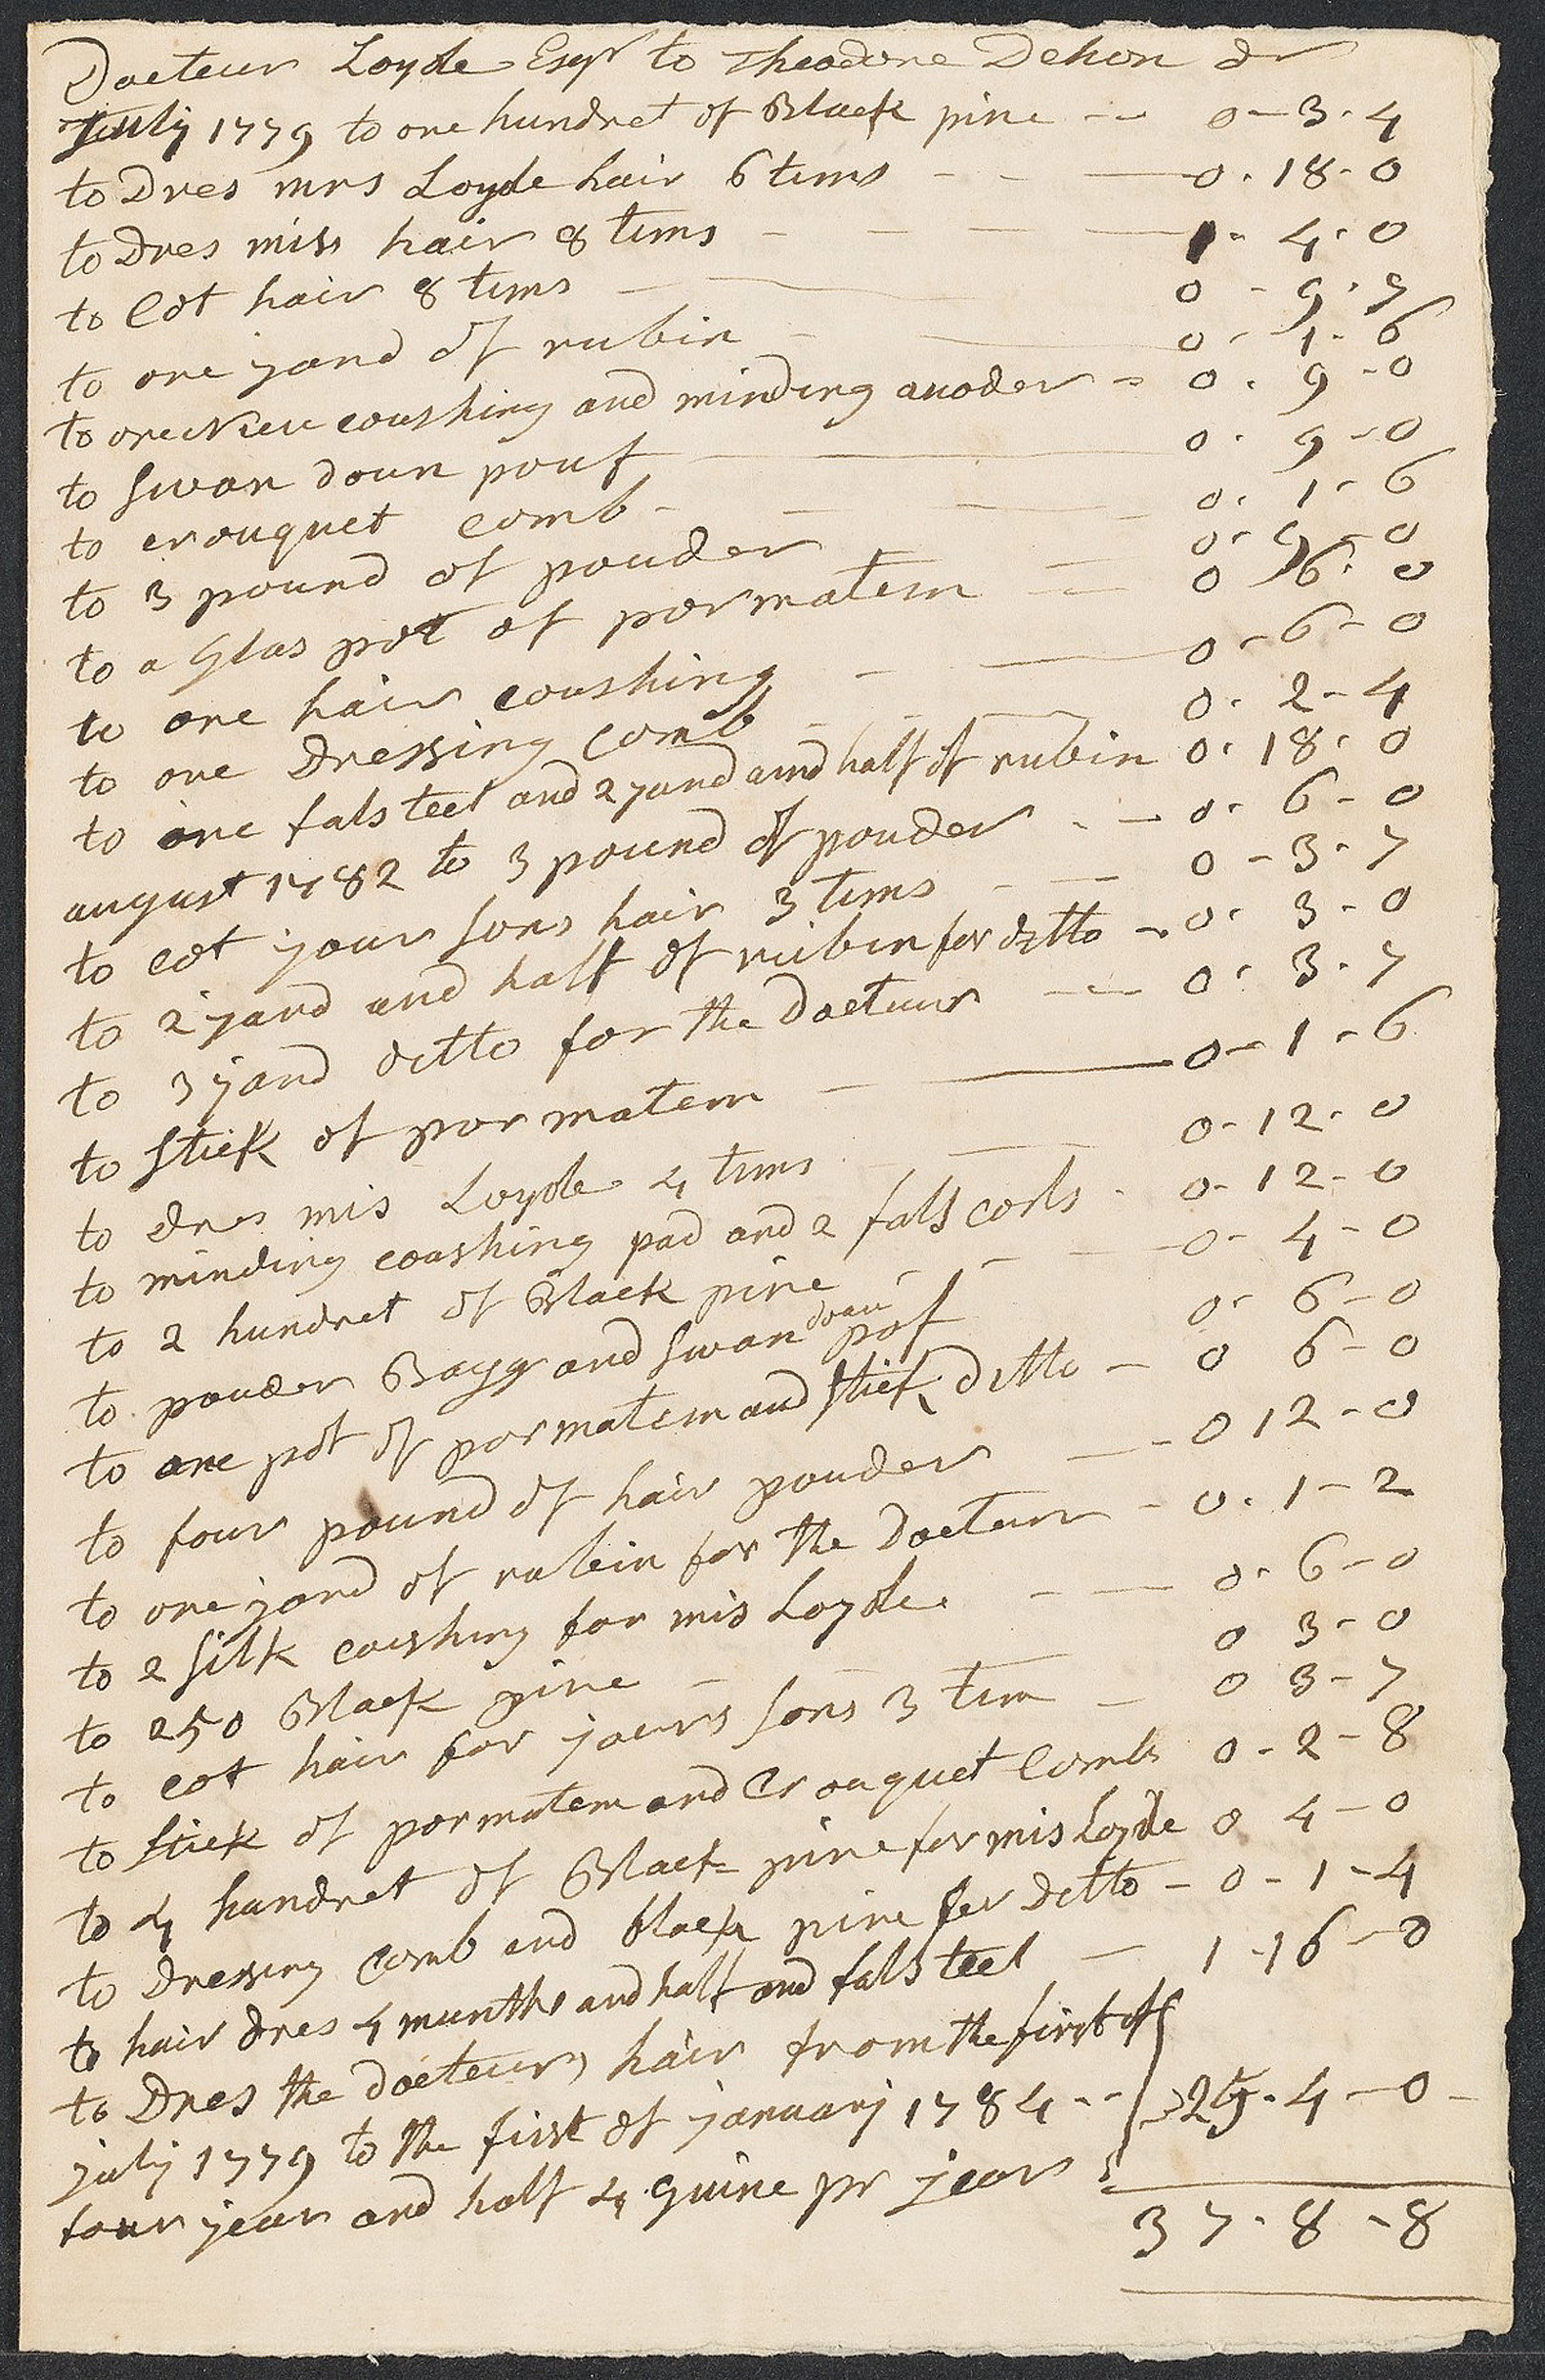 Docteur Loyde Esqr to Theodore Dehon dr
July 1779 to one hundret of Black pine -- 0-3-4
to Dres mrs Loyde hair 6 tims - - - 0-18-0
to Dres miss hair 8 tims - - - 1-4-0
to Cot hair 8 tims - 0-9-7
to one yand of rubin - 0-1-6
to one New coushing and minding anoder - 0-9-0
to Swan doun pouf - 0-9-0
to crouquet comb - - - 0-1-6
to 3 pound of pouder 0-9-0
to a Glas pot of pormatem - 0 16-0
to one hair coushing - - 0-6-0
to one Dressing Comb - - 0-2-4
to one fals teel and 2 yand and half of rubin 0-18-0
august 1782 to 3 pound of pouder - - 0-6-0
to cot your sons hair 3 tims - - 0-3-7
to 2 yard and half of rubin for ditto - 0-3-0
to 3 yand ditto for the Docteur - - 0-3-7
to Stick of pormatem - - 0-1-6
to dres mis Loyde 4 tims - 0-12-0
to minding coushing pad and 2 fals corls - 0-12-0
to 2 hundret of Black pine - - - 0-4-0
to pouder Bagg and swan doun pof 0-6-0
to one pot of pormatem and Stick Ditto - 0 6-0
to four pound of hair pouder - - 0 12-0
to one yard of rubin for the Docteur - 0-1-2
to 2 Silk coushing for mis Loyde - - 0-6-0
to 250 Black pine - - 0 3-0
to cot hair for yours sons 3 tim - 0 3-7
to Stick of pormatem and Crouquet Comb 0-2-8
to 4 hundret of Black pine for mis Loyde 0 4-0
to Dressing Comb and black pine for Ditto - 0-1-4
to hair dres 4 munths and half and fals teel - 1-16-0
to Dres the docteurs hair from the first of
july 1779 to the first of january 1784 -- 25-4-0-
four year and half 4 guine pr jear
37-8-8